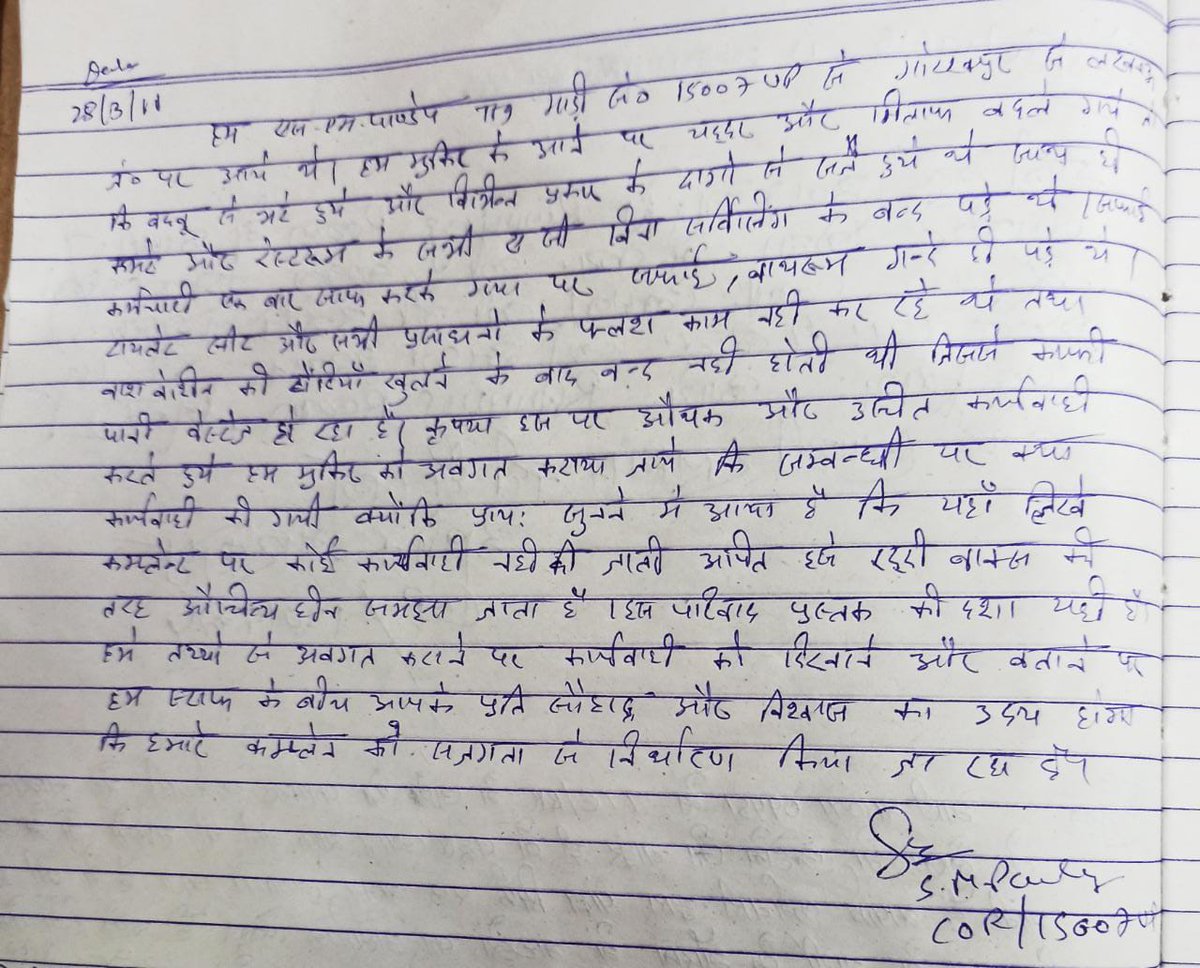 Date
28/3/11
हम एस.एम.पाण्डेय गाड़ी सं० 15007 UP से गोरखपुर से लखनऊ
जं० पर आये थे। हम मुकिर के आने पर चद्दर और गिलाफ बदले गये
कि बदबू से भरे हुये और विभिन्न प्रकार के दागों से सने हुये थे साथ ही
कमरे और रेस्टरूम के सभी ए सी बिना सर्विसिंग के बन्द पड़े थे। सफाई
कर्मचारी एक बार साफ करके गया पर सफाई, बाथरूम गन्दे ही पड़े थे।
टायलेट सीट और सभी प्रसाधनों के फ्लश काम नही कर रहे थे तथा
वाश बेशीन की टोंटियाँ खुलने के बाद बन्द नही होती थी जिससे काफी
पानी वेस्टेज हो रहा है। कृपया इस पर औचक और उचित कार्यवाही
करते हुये हम मुकिर को अवगत कराया जाये कि सम्बन्धी पर क्या
कार्यवाही की गयी क्योंकि प्राय: सुनने मे आया है कि यहाँ लिखे
कमप्लेन्ट पर कोई कार्यवाही नही की जाती अपित इसे रद्दी बाक्स की
तरह औचित्य हीन समझा जाता है। इस परिवाद पुस्तक की दशा यही है
हमे तथ्यो से अवगत कराने पर कार्यवाही को दिखाने और बताने पर
हम स्टाफ के बीच आपके प्रति सौहाद्र और विश्वास का उदय होगा
कि हमारे कम्प्लेन को सजगता से निर्धारण किया जा रहा है।
S. M. Pandey
COR/15007 UP